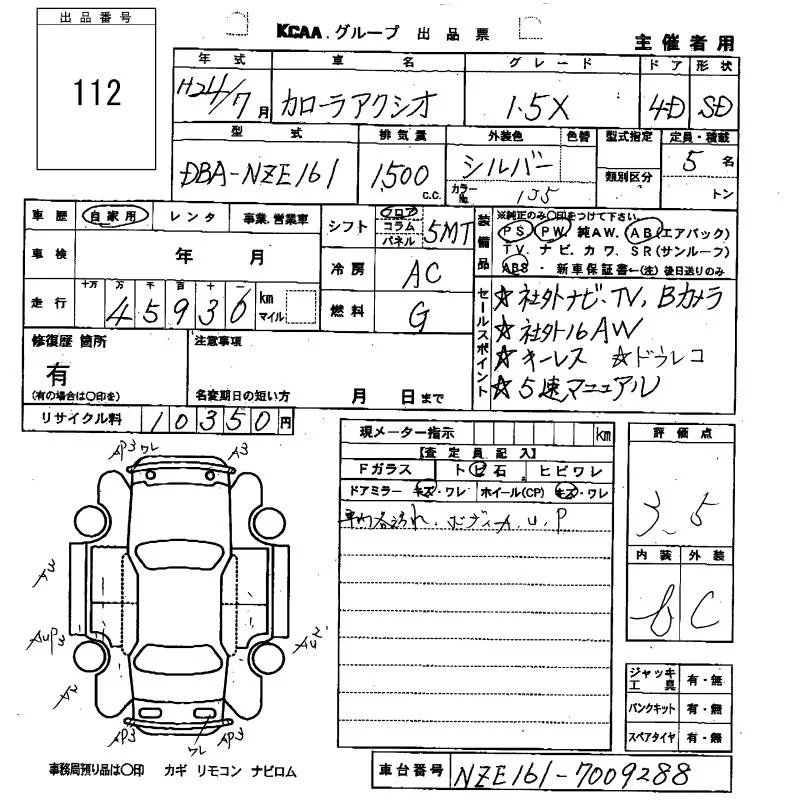 出品番号
112
KCAA.グループ 出品票
主催者用
年式 車名 グレード ドア 形状
H24/7月 カローラアクシオ 1.5X 4D SD
型式 排気量 外装色 色替 型式指定 定員・積載
DBA-NZE161 1500 C.C. シルバー 5名
カラーNo. 1J5 類別区分 トン
車歴 自家用 レンタ 事業、営業車
シフト フロア コラム パネル 5MT
装備品
※純正のみ〇印をつけて下さい
PS PW 純AW. AB(エアバック)
TV. ナビ. カワ. SR(サンルーフ)
ABS ・ 新車保証書←(注)後日送りのみ
車検 年 月
冷房 AC
走行 十万 万 千 百 十 一
45936 km マイル
燃料 G
セールスポイント
☆社外ナビ・TV, Bカメラ
☆社外16AW
☆キーレス ☆ドラレコ
☆5速マニュアル
修復歴 箇所
有
(有の場合は〇印を)
注意事項
名変期日の短い方 月 日まで
リサイクル料 10350円
現メーター指示 km
【査定員記入】
Fガラス トビ石 ヒビワレ
ドアミラー キズ・ワレ ホイール(CP) キズ・ワレ
車内各汚れ、ボディA, U, P
評価点
3.5
内装 外装
b C
ジャッキ工具 有・無
パンクキット 有・無
スペアタイヤ 有・無
AP3 ワレ A3
AUP3
AP3 ワレ AP3
事務局預り品は〇印 カギ リモコン ナビロム
車台番号 NZE161-7009288